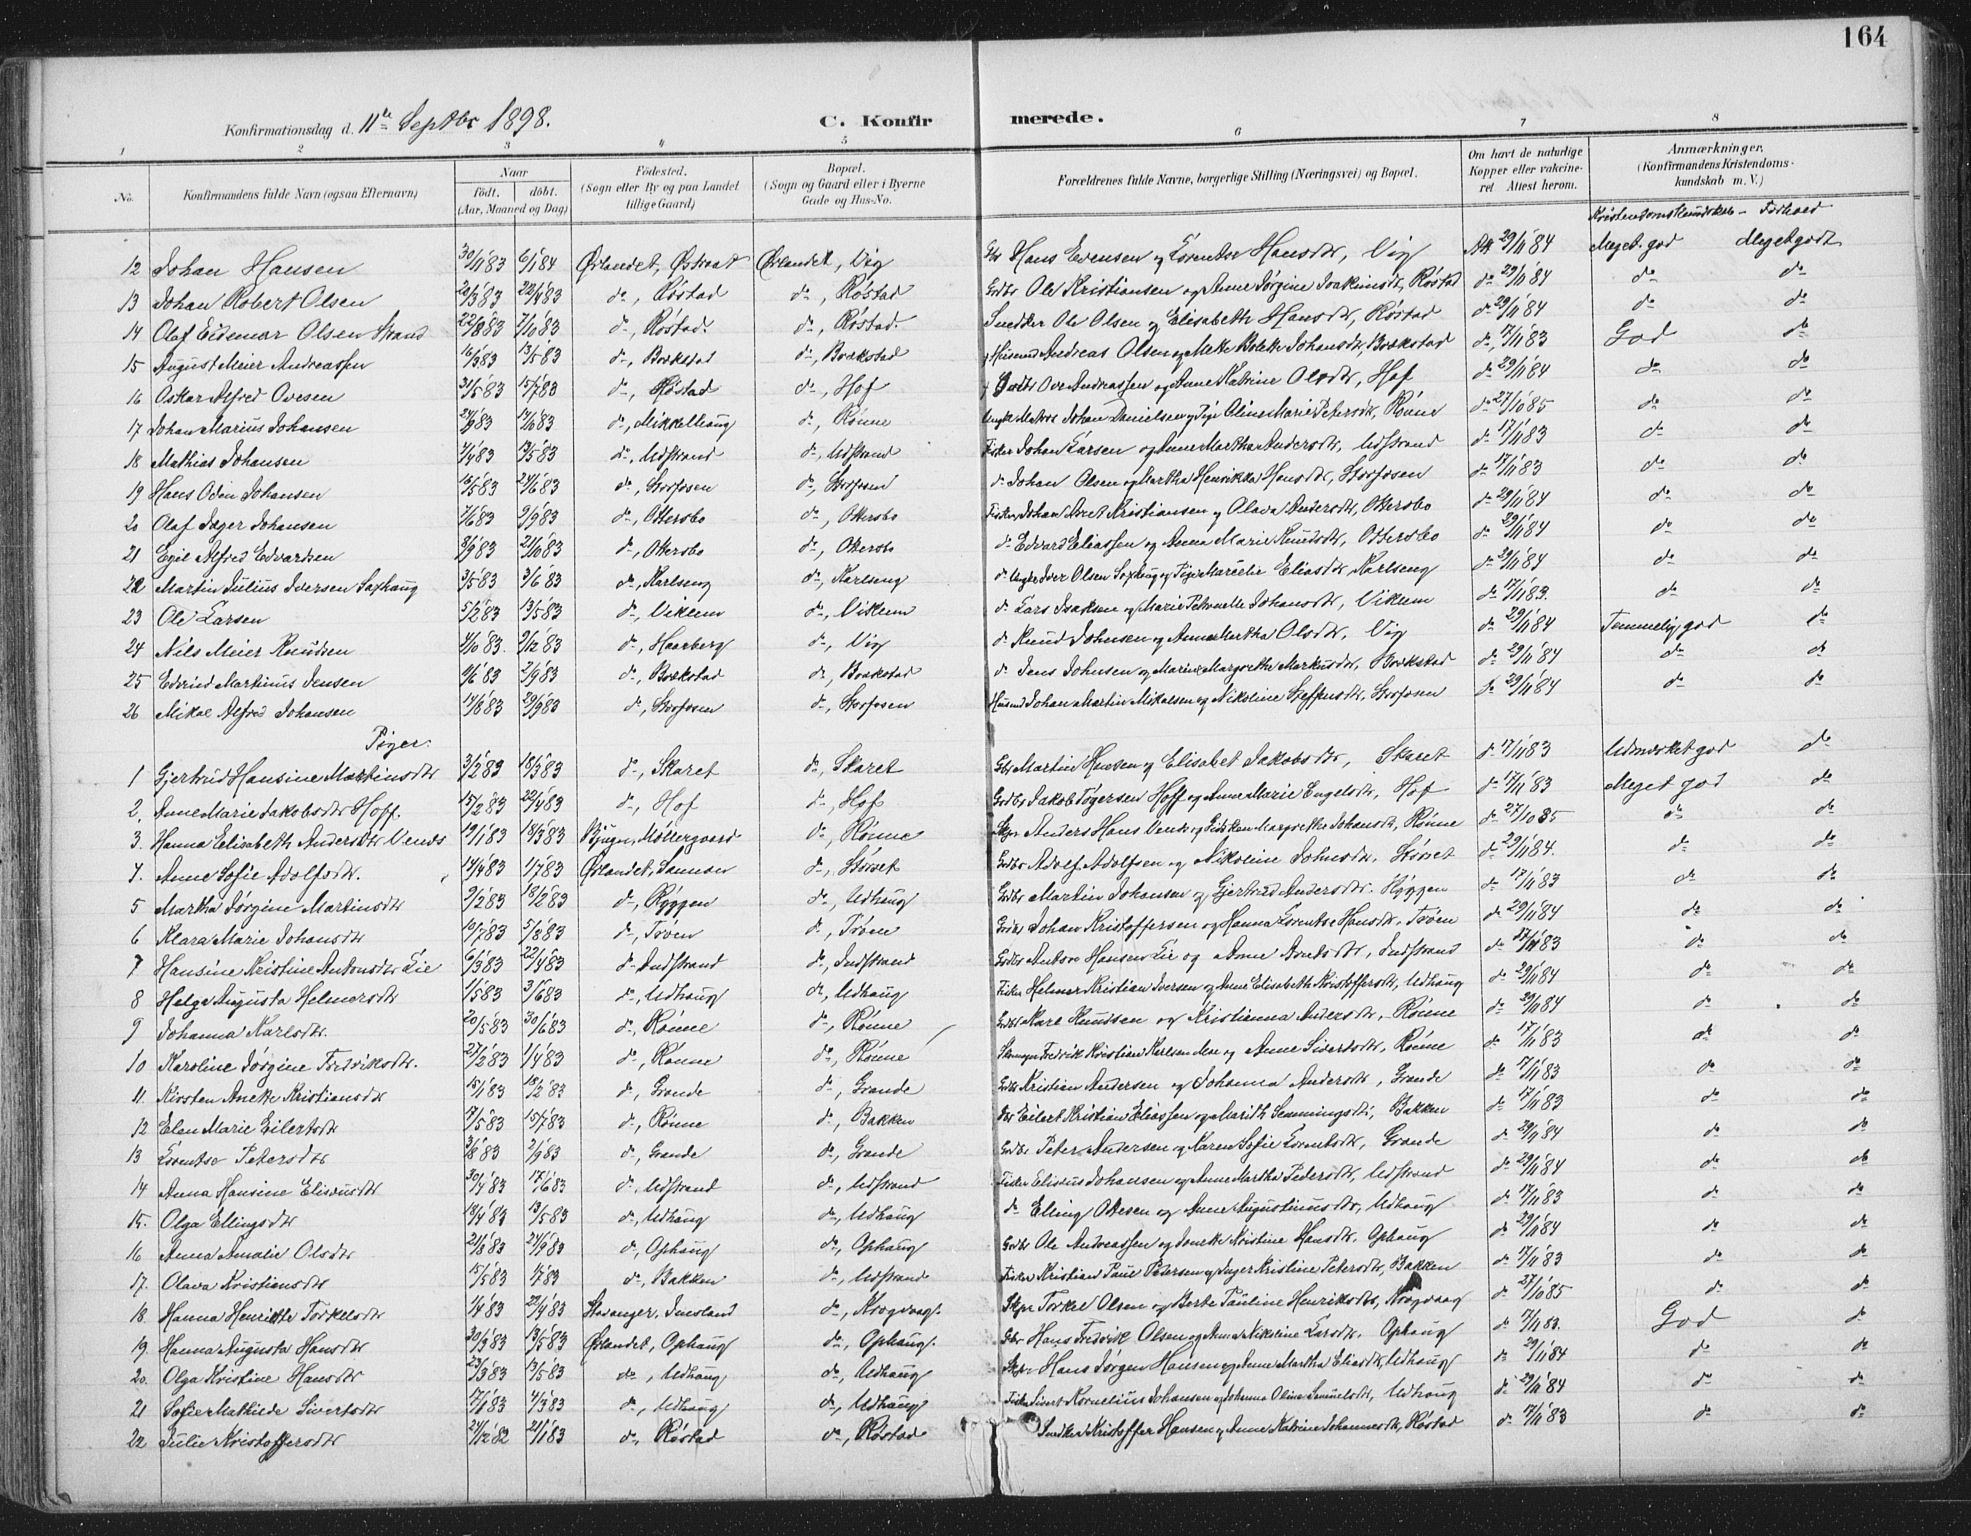 164
Konfirmationsdag d. 11te Septbr 1898. C. Konfirmerede.
1 2 3 4 5 6 7 8
No. Konfirmandens fulde Navn (ogsaa Efternavn) Naar født. døbt. (Aar, Maaned og Dag) Fødested. (Sogn eller By og paa Landet tillige Gaard) Bopæl. (Sogn og Gaard eller i Byerne Gade og Hus-No. Forældrenes fulde Navne, borgerlige Stilling (Næringsvei) og Bopæl. Om havt de naturlige Kopper eller vakcineret Attest herom. Anmærkninger. (Konfirmandens Kristendomskundskab m. V.)
Kristendomskundskab - Forhold
12 Johan Hansen 30/11 83 6/1 84 Ørlandet, Østraat Ørlandet, Vig Hans Evensen og Lorentse Hansdtr, Vig 29/11 84 Meget god Meget godt
13 Johan Robert Olsen 20/3 83 22/4 83 do, Røstad do, Røstad Grdbr Ole Kristiansen og Anne Jørgine Joakimsdr, Røstad do 29/11 84 do do
14 Olaf Eidemar Olsen Strand 22/8 83 7/10 83 do, Røstad. do, Røstad. Snedker Ole Olsen og Elisabeth Hansdtr, Røstad do 29/11 84 do do
15 August Meier Andreassen 16/3 83 13/5 83 do, Brekstad do, Brekstad Husmd Andreas Olsen og Mette Bolette Johansdtr, Brekstad do, 17/11 83 God do
16 Oskar Alfred Ovesen 31/5 83 15/7 83 do, Røstad do, Hof Ove Andreassen og Anne Katrine Olsdtr, Hof do 29/11 84 do do
17 Johan Marius Johansen 24/9 83 14/10 83 do, Mikkelhaug do, Rønne Ungk. Matros Johan Danielsen og Pige Oline Marie Petersdtr, Rønne do 27/10 85 do do
18 Mathias Johansen 7/4 83 13/5 83 do, Udstrand do, Udstrand Fisker Johan Larsen og Anne Martha Andersdtr, Udstrand do 17/11 83 do do
19 Hans Odin Johansen 15/5 83 24/6 83 do, Storfosen do, Storfosen do Johan Olsen og Martha Henrikka Hansdtr, Storfosen do 17/11 83 do do
20 Olaf Jæger Johansen 7/6 83 2/9 83 do, Ottersbo do, Ottersbo Fisker Johan Arnt Kristiansen og Olava Andersdtr, Ottersbo do 29/11 84 do do
21 Egil Alfred Edvardsen 8/9 83 21/10 83 do, Ottersbo do, Ottersbo do Edvard Eliassen og Anna Marie Knudsdtr, Ottersbo do 29/11 84 do do
22 Martin Julius Iversen Saxhaug 3/5 83 3/6 83 do, Karlseng do, Karlseng do Ungk. Iver Olsen Saxhaug og Pige Marcelie Eliasdtr, Karlseng do 29/11 84 do do
23 Ole Larsen 5/2 83 13/5 83 do, Viklem do, Viklem do Lars Isaksen og Marie Petronelle Johansdtr, Viklem do 17/11 83. do do
24 Nils Meier Knudsen 4/10 83. 9/12 83 do, Haarberg do, Vig do Knud Johnsen og Anne Martha Olsdtr, Vig do 29/11 84 Temmelig god do
25 Martinus Jensen 9/6 83 2/9 83 do, Brekstad do, Brekstad do Jens Johnsen og Marine Margrethe Markusdtr, Brekstad do 29/11 84 do do
26 Mikal Alfred Johansen 14/8 83 23/9 83 do, Storfosen do, Storfosen Husmd Johan Martin Mikalsen og Nikoline Steffensdtr, Storfosen do 29/11 84 do do
Piger.
1 Gjertrud Hansine Martinsdtr 3/2 83 18/3 83 do, Skaret do, Skaret Gbr Martin Hansen og Elisabet Jakobsdtr, Skaret do 17/11 83 Udmærket god do
2. Anne Marie Jakobsdtr Hoff. 15/2 83 22/4 83 do, Hof do, Hof Grdbr Jakob Tøgersen Hoff og Anne Marie Engelsdtr, Hof do 17/11 83 Meget god do
3. Hanna Elisabeth Andersdtr Venes 19/1 83 18/3 83 Bjugn, Møllergaard do, Rønne Skpr Anders Hans Venes og Margrethe Johansdtr, Rønne do 27/10 85 do do
4. Anne Sofie Adolfsdtr. 14/4 83 1/7 83 Ørlandet, do, Støvset Grdbr Adolf Adolfsen og Nikoline Johnsdtr. Støvset do 29/11 84. do do
5 Martha Jørgine Martinsdtr 9/2 83 18/2 83 do, Ryggen do, Udhaug Grdbr Martin Johansen og Gjertrud Andersdtr. Ryggen do 17/11 83 do do
6 Klara Marie Johansdtr 10/7 83 5/8 83 do, Tøven do, Tøven Grdbr Johan Kristoffersen og Hanna Lorentse Hansdtr. Tøven do 29/11 84 do do
7 Hansine Kristine Antonsdtr Lie 6/3 83 22/4 83 do Indstrand do, Indstrand Grdbr Anton Hansen Lie og Anne Arntsdtr, Indstrand do 17/11 83 do do
8 Helga Augusta Helmersdtr 1/5 83 3/6 83 do, Udhaug do, Udhaug Fisker Helmer Kristian Iversen og Anne Elisabeth Kristoffersdtr, Udhaug do 29/11 84 do do
9 Johanna Karlsdtr. 20/5 83 30/6 83 do, Rønne do, Rønne Grdbr Karl Knudsen og Kristianna Andersdtr, Rønne do 29/11 84 do do
10 Karoline Jørgine Fredriksdtr. 27/2 83 1/4 83 do, Rønne do, Rønne Fredrik Kristian Karlsen og Anne Sivertsdtr, Rønne do 17/11 83 do do
11. Kirsten Anette Kristiansdtr 15/1 83 18/2 83 do, Grande do, Grande Grdbr Kristian Andersen og Johanna Andersdtr, Grande do 17/11 83 do do
12 Elen Marie Eilertsdtr 17/5 83 15/7 83 do, Rønne do, Bakken Gbr Eilert Kristian Eliassen og Marith Henningsdtr, Bakken do 17/11 83 do do
13 Lorentse Petersdtr 3/8 83 2/9 83 do, Grande do, Grande Grdbr Peter Andersen og Karen Sofie Lorentsdtr, Grande do 29/11 84 do do
14 Anna Hansine Eliseusdtr 30/4 83 17/6 83 do, Udstrand do, Udstrand Fisker Eliseus Johansen og Anne Martha Pedersdtr, Udstrand do 29/11 84 do do
15. Olga Ellingsdtr 18/4 83 13/5 83 do, Udhaug do, Udhaug do Elling Ottesen og Anne Augustinusdtr, Udhaug do 17/11 83 do do
16 Anna Amalie Olsdtr 21/8 83 24/9 83 do, Ophaug do, Ophaug Grdbr Ole Andreassen og Kristine Hansdtr. Ophaug do 29/11 84 do do
17. Olava Kristiansdtr 15/5 83 1/7 83 do, Bakken do, Udstrand Fisker Kristian Paul Petersen og Inger Kristine Petersdtr, Bakken do 17/11 83 do do
18. Hanna Henriette Torkelsdtr 1/4 83 22/4 83 Stavanger, do, Krogvaag. Skpr Torkel Olsen og Berte Pauline Henriksdtr, Krogvaag do 27/10 85 do do
19 Hanna Augusta Hansdtr 20/3 83 13/5 83 Ørlandet, Ophaug do, Ophaug. Gbr Hans Fredrik Olsen og Anna Nikoline Larsdtr. Ophaug do 17/11 83. God do
20. Olga Kristine Hansdtr 23/3 83 13/5 83 do, Udhaug do, Udhaug Skpr Hans Jørgen Hansen og Anne Martha Eliasdtr, Udhaug do 29/11 84 do do
21 Sofie Mathilde Sivertsdtr 17/1 83 4/3 83 do, Udhaug do, Udhaug Fisker Sivert Kornelius Johansen og Johanna Oline Samuelsdtr, Udhaug do 29/11 84 do do
22 Julie Kristoffersdtr 24/12 82 21/1 83 do, Røstad do, Røstad Snedker Kristoffer Hansen og Anne Katrine Johannesdtr, Røstad do 17/11 83 do do